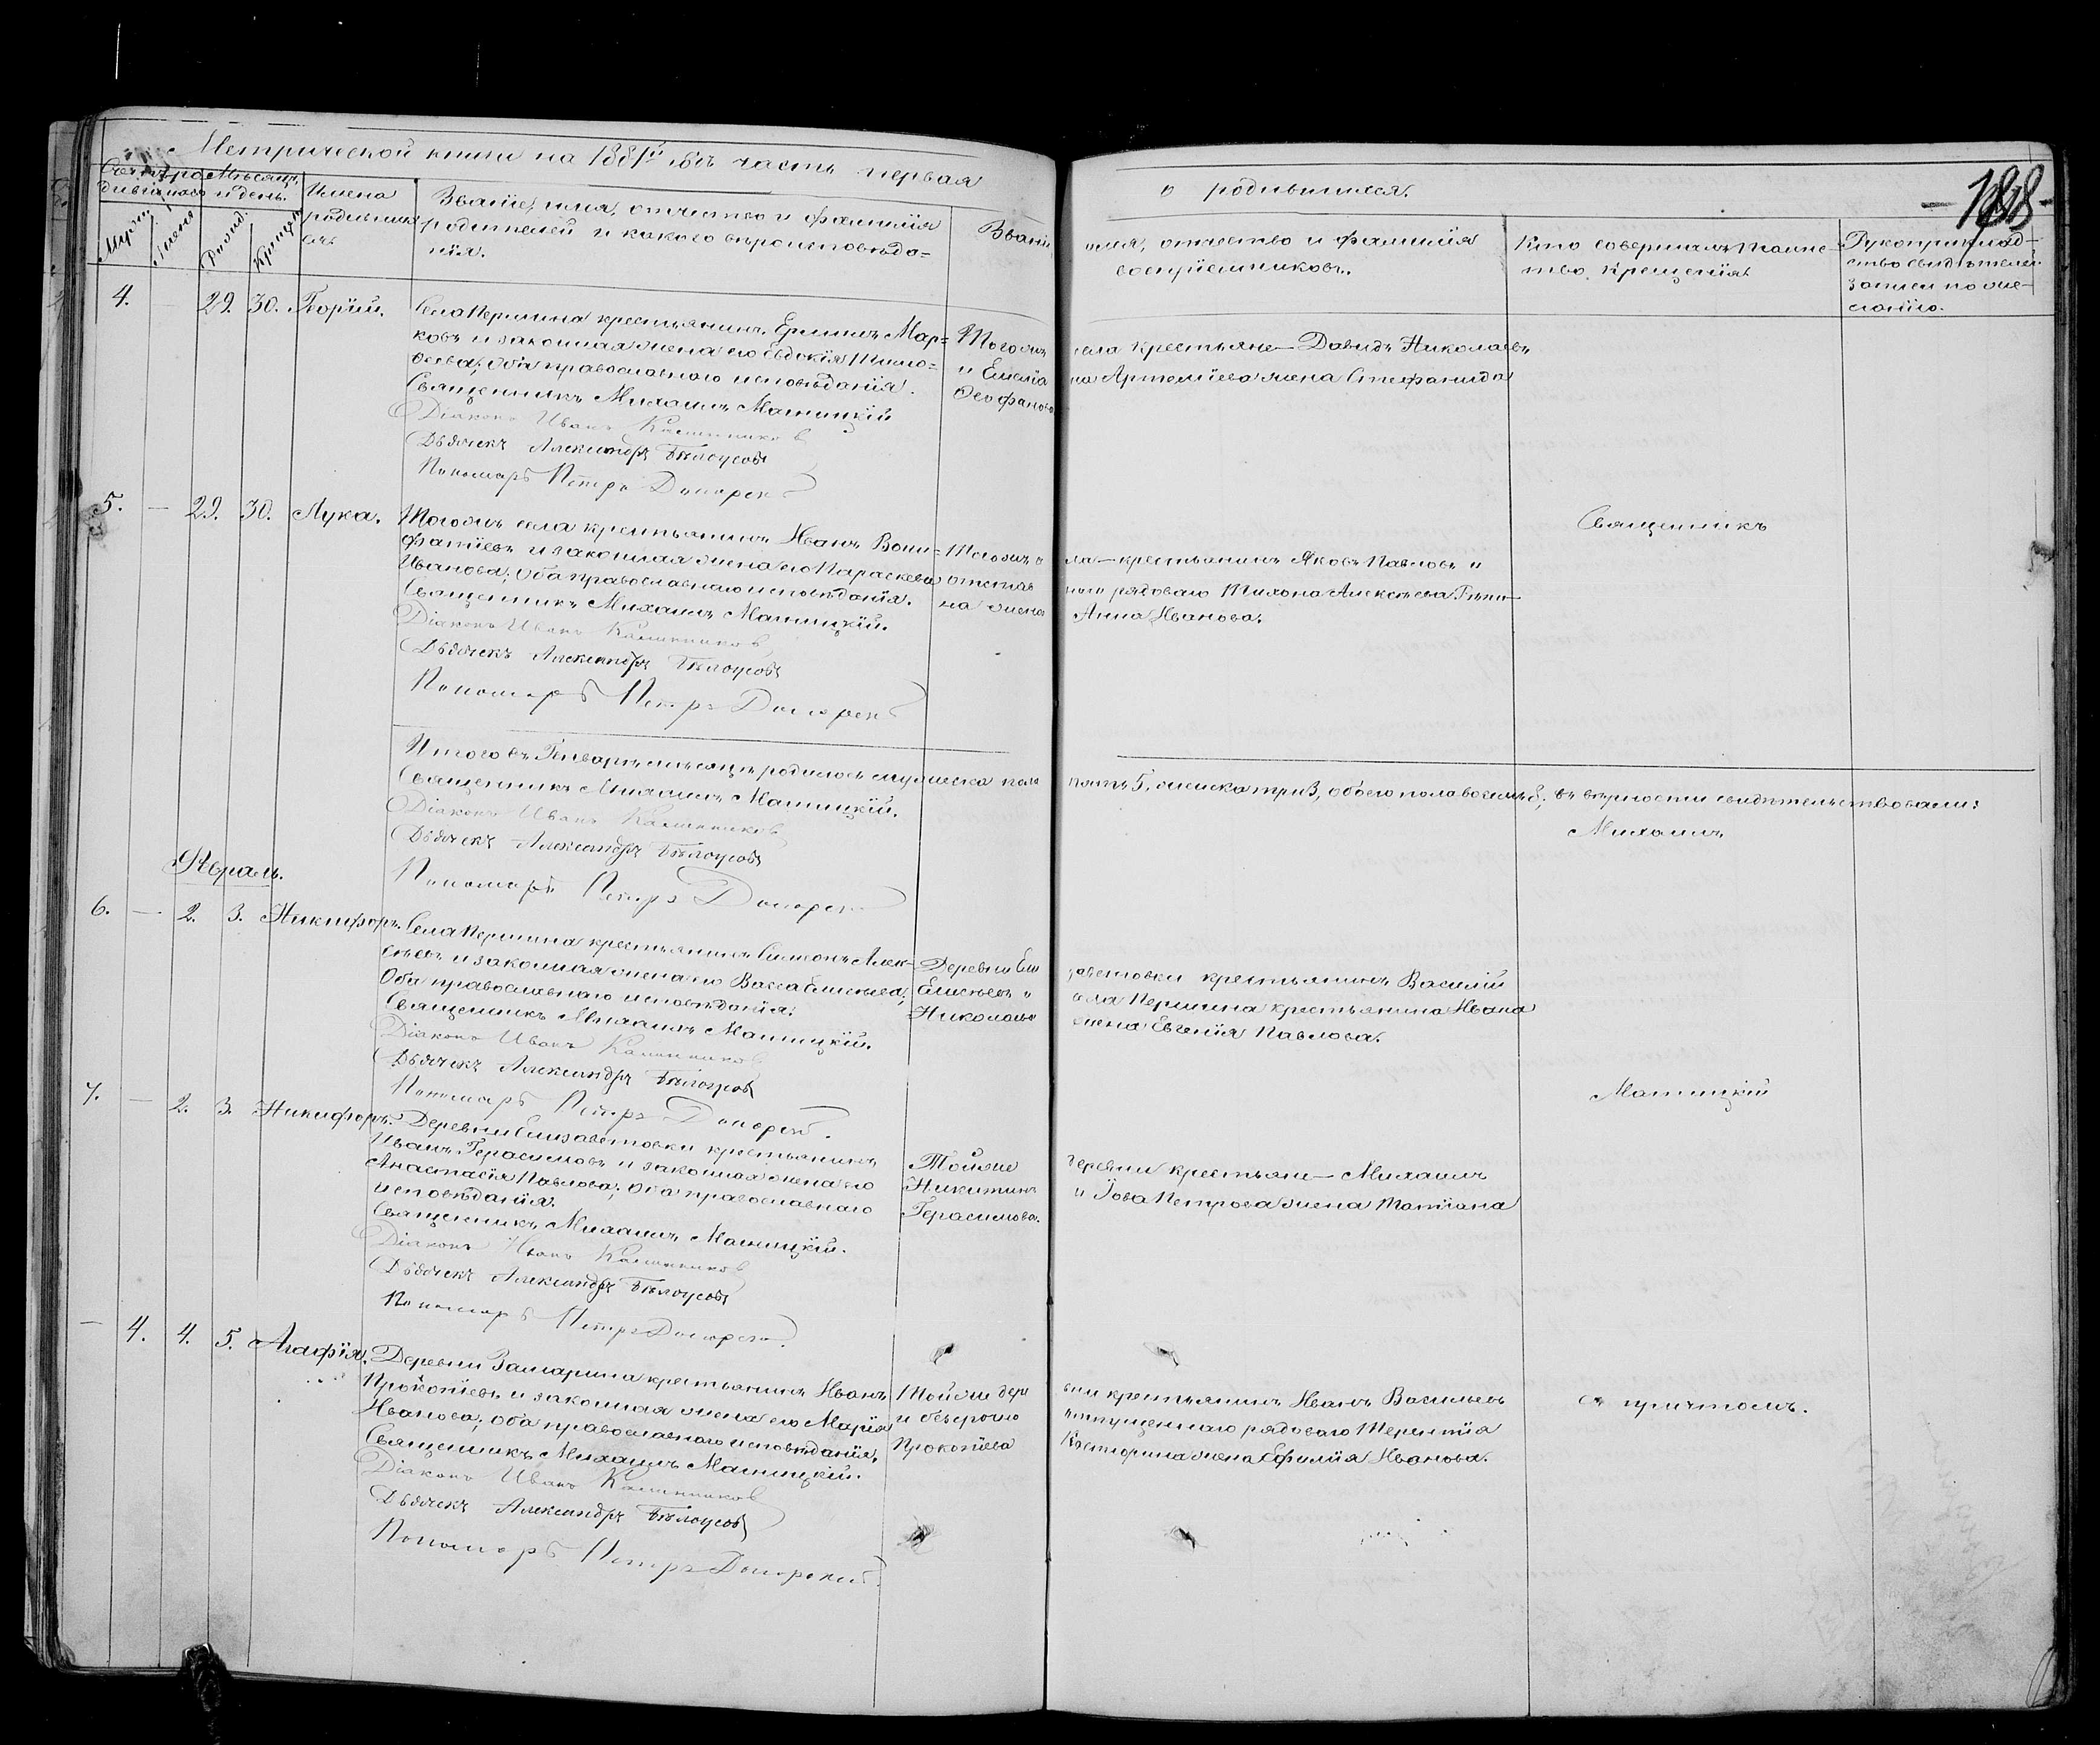 Метрической книги на 1881й годъ часть первая
о родившихся.
188
Счетъ родившихся
Мѣсяцъ и день.
Мужск.
Женск.
Рожд.
Крещен.
Имена родившихся
Званіе, имя, отчество и фамилія
родителей и какого вѣроисповѣда=
нія.
Званіе
имя, отчество и фамилія
воспріемниковъ.
Кто совершалъ таинс-
тво крещенія
Рукоприклад-
ство свидѣтелей
записи по же-
ланію.
4. 29. 30.
Села Першина крестьянинъ Ермилъ Мар=
ковъ и законная жена его Евдокія Тимо=
феева; оба православнаго исповѣданія.
Священникъ Михаилъ Матицкій
Діаконъ Иванъ Калинников
Дьячекъ Александръ Бѣлоусовъ
Пономарь Петръ
Тогожъ
села крестьяне — Давидъ Николаевъ
и Емелiа
на Артеміева жена Стефанида
Феофанова
5. — 29. 30. Лука.
Тогожъ села крестьянинъ Иванъ Вони=
фатіевъ и законная жена его Параскева
Иванова; оба православнаго исповѣданія.
Священникъ Михаилъ Матицкій.
Діаконъ Иванъ Калинников
Дьячекъ Александръ Бѣлоусовъ
Пономарь Петръ
Тогожъ с
ла — крестьянинъ Яковъ Павловъ и
отстав
наго рядоваго Тихона Алексѣева
на жена
Анна Иванова.
Священникъ
Итого въ Генварѣ мѣсяцѣ родилось мужеска пола
пять 5, женска три 3, обоего пола восемь 8; въ вѣрности свидѣтельствовали:
Священникъ Михаилъ Матицкій.
Діаконъ Иванъ Калинников
Дьячекъ Александръ Бѣлоусовъ
Пономарь Петръ
Михаилъ
Февраль.
6. — 2. 3. Никифоръ.
Села Першина крестьянинъ Симеонъ Алек-
сѣевъ и законная жена его Васса Елисѣева;
Оба православнаго исповѣданія.
Священникъ Михаилъ Матицкій.
Діаконъ Иванъ Калинников
Дьячекъ Александръ Бѣлоусовъ
Пономарь Петръ
Деревни Ели
заветовки крестьянинъ Василій
Елисѣевъ и
села Першина крестьянина Ивана
Николаева
жена Евгенія Павлова.
7. — 2. 3. Никифоръ.
Деревни Елизаветовки крестьянинъ
Иванъ Герасимовъ и законная жена его
Анастасія Павлова; Оба православнаго
исповѣданія.
Священникъ Михаилъ Матицкій.
Діаконъ Иванъ Калинников
Дьячекъ Александръ Бѣлоусовъ
Пономарь Петръ
Тойже
деревни крестьяне — Михаилъ
Никитинъ
и Іова Петрова жена Татіана
Герасимова.
Матицкій
— 4. 4. 5. Агафія.
Деревни Замарина крестьянинъ Иванъ
Прокопіевъ и законная жена его Марія
Иванова; оба православнаго исповѣданія.
Священникъ Михаилъ Матицкій.
Діаконъ Иванъ Калинников
Дьячекъ Александръ Бѣлоусовъ
Пономарь Петръ
Тойже дере
вни крестьянинъ Иванъ Васильевъ
и безсрочно
отпущеннаго рядоваго Терентія
Прокопіева
жена Ефимія Иванова.
съ причтомъ.